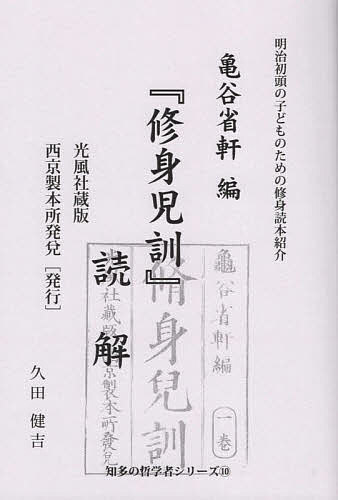 明治初頭の子どものための修身読本紹介
亀谷省軒 編
『修身児訓』
光風社蔵版
西京製本所発兌[発行]
読解
久田 健吉
龜谷省軒編
一巻
脩身兒訓
知多の哲学者シリーズ⑩